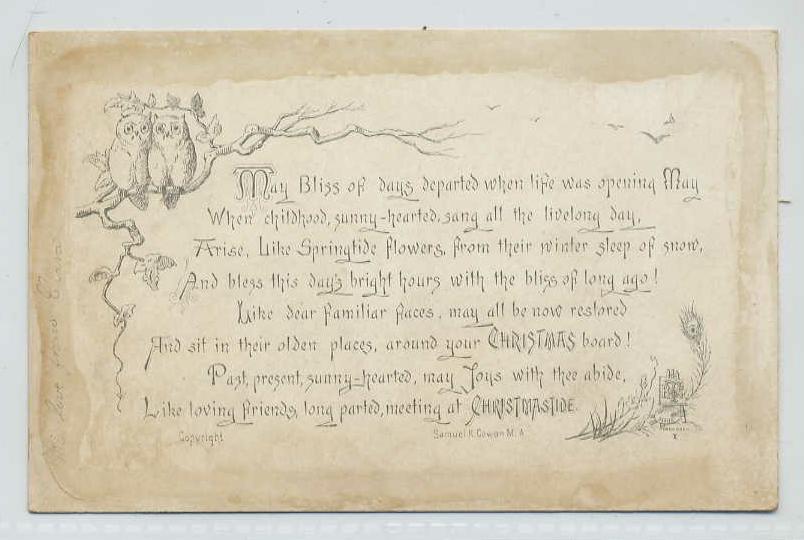 May Bliss of days departed when life was opening May
When childhood, sunny-hearted, sang all the livelong day,
Arise, Like Springtide flowers, from their winter sleep of snow,
And bless this day's bright hours with the bliss of long ago!
Like dear familiar faces, may all be now restored
And sit in their olden places, around your CHRISTMAS board!
Past, present, sunny-hearted, may Joys with thee abide,
Like loving friends, long parted, meeting at CHRISTMASTIDE.
Copyright
Samuel K. Cowan M.A